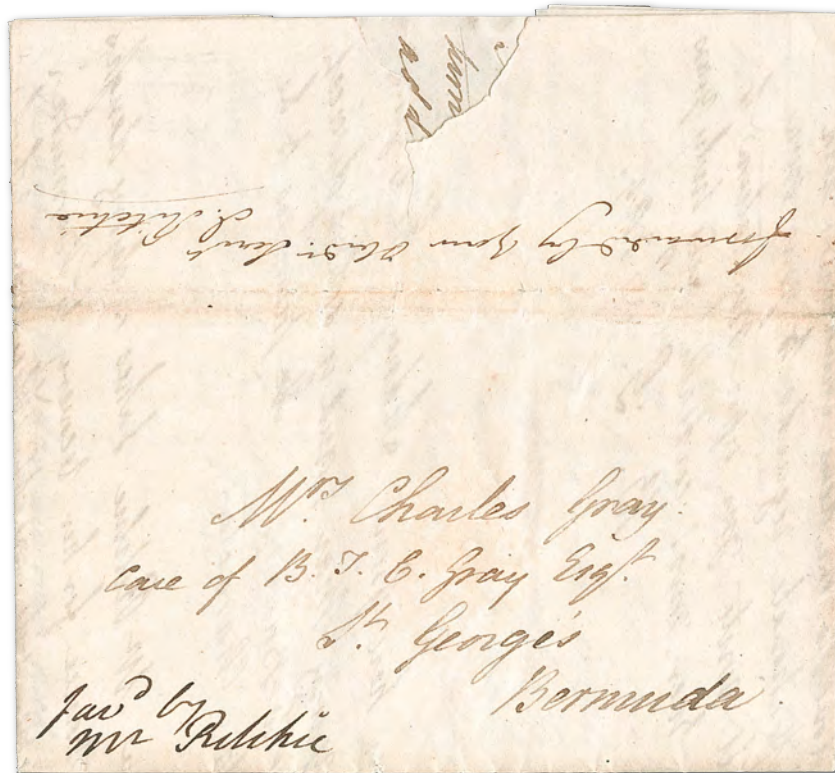 forwarded by your Obdt. Servt
J. Ritchie
Mrs Charles Gray
Care of B. T. C. Gray Esqr.
St. Georges
Bermuda
favd by
Mr Ritchie